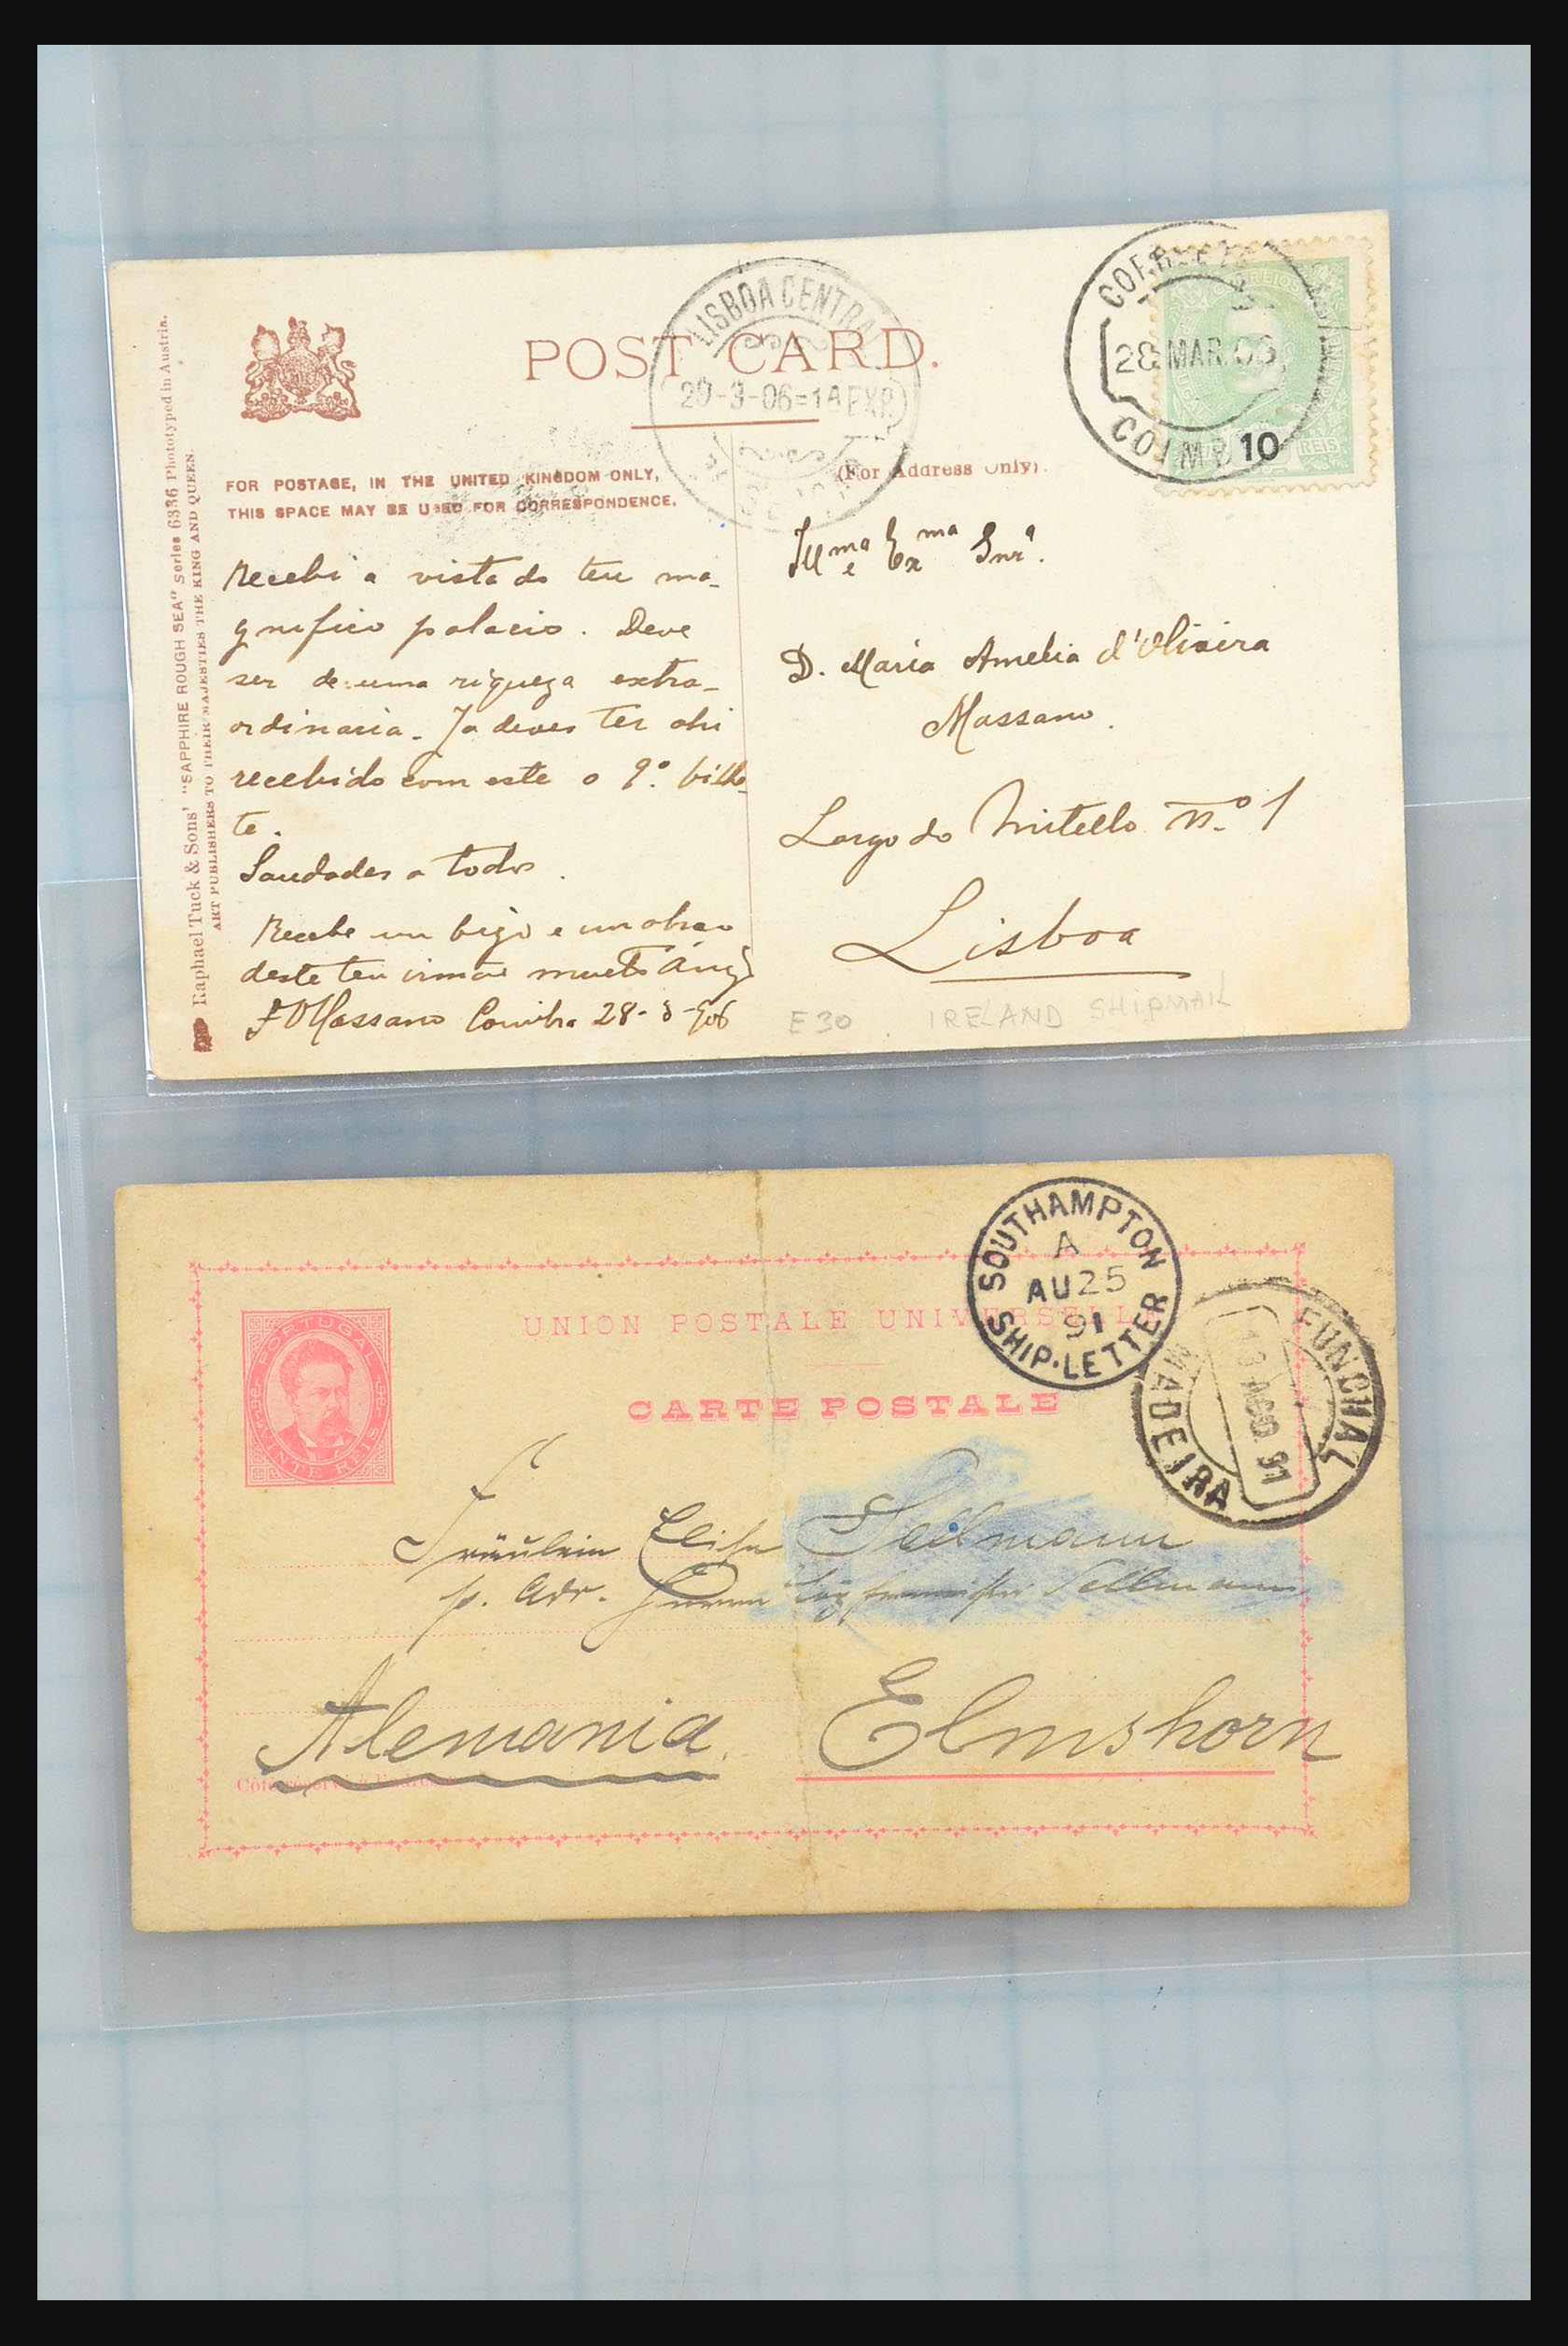 POST CARD.
LISBOA CENTRAL
29-3-06=1A EXP.
CORREIO
28 MAR. 06
COIMB
CORREIOS
10
REIS
FOR POSTAGE, IN THE UNITED KINGDOM ONLY,
THIS SPACE MAY BE USED FOR CORRESPONDENCE.
(For Address Only)
Raphael Tuck & Sons' "SAPPHIRE ROUGH SEA" Series 6336 Phototyped in Austria.
ART PUBLISHERS TO THEIR MAJESTIES THE KING AND QUEEN.
Recebi a vista do teu ma-
gnifico palacio. Deve
ser de uma riqueza extra-
ordinaria. Ja deves ter ahi
recebido com este o 9.º bilhe-
te.
Saudades a todos.
Recebe um beijo e um abraço
deste teu irmão muito
Massano Coimbra 28-3-906
Ill.ma e Ex.ma Snr.ª
D. Maria Amelia d'Oliveira
Massano.
Largo do Mitello n.º 1
Lisboa
E30. IRELAND SHIPMAIL
SOUTHAMPTON
A
AU 25
91
SHIP-LETTER
UNION POSTALE UNIVERSELLE
CARTE POSTALE
FUNCHAL
13 AGO. 91
MADEIRA
PORTUGAL
VINTE REIS
Fräulein Elisa Sellmann
p. Adr. Herrn Sellmann
Alemania. Elmshorn
Côté réservé à l'adresse